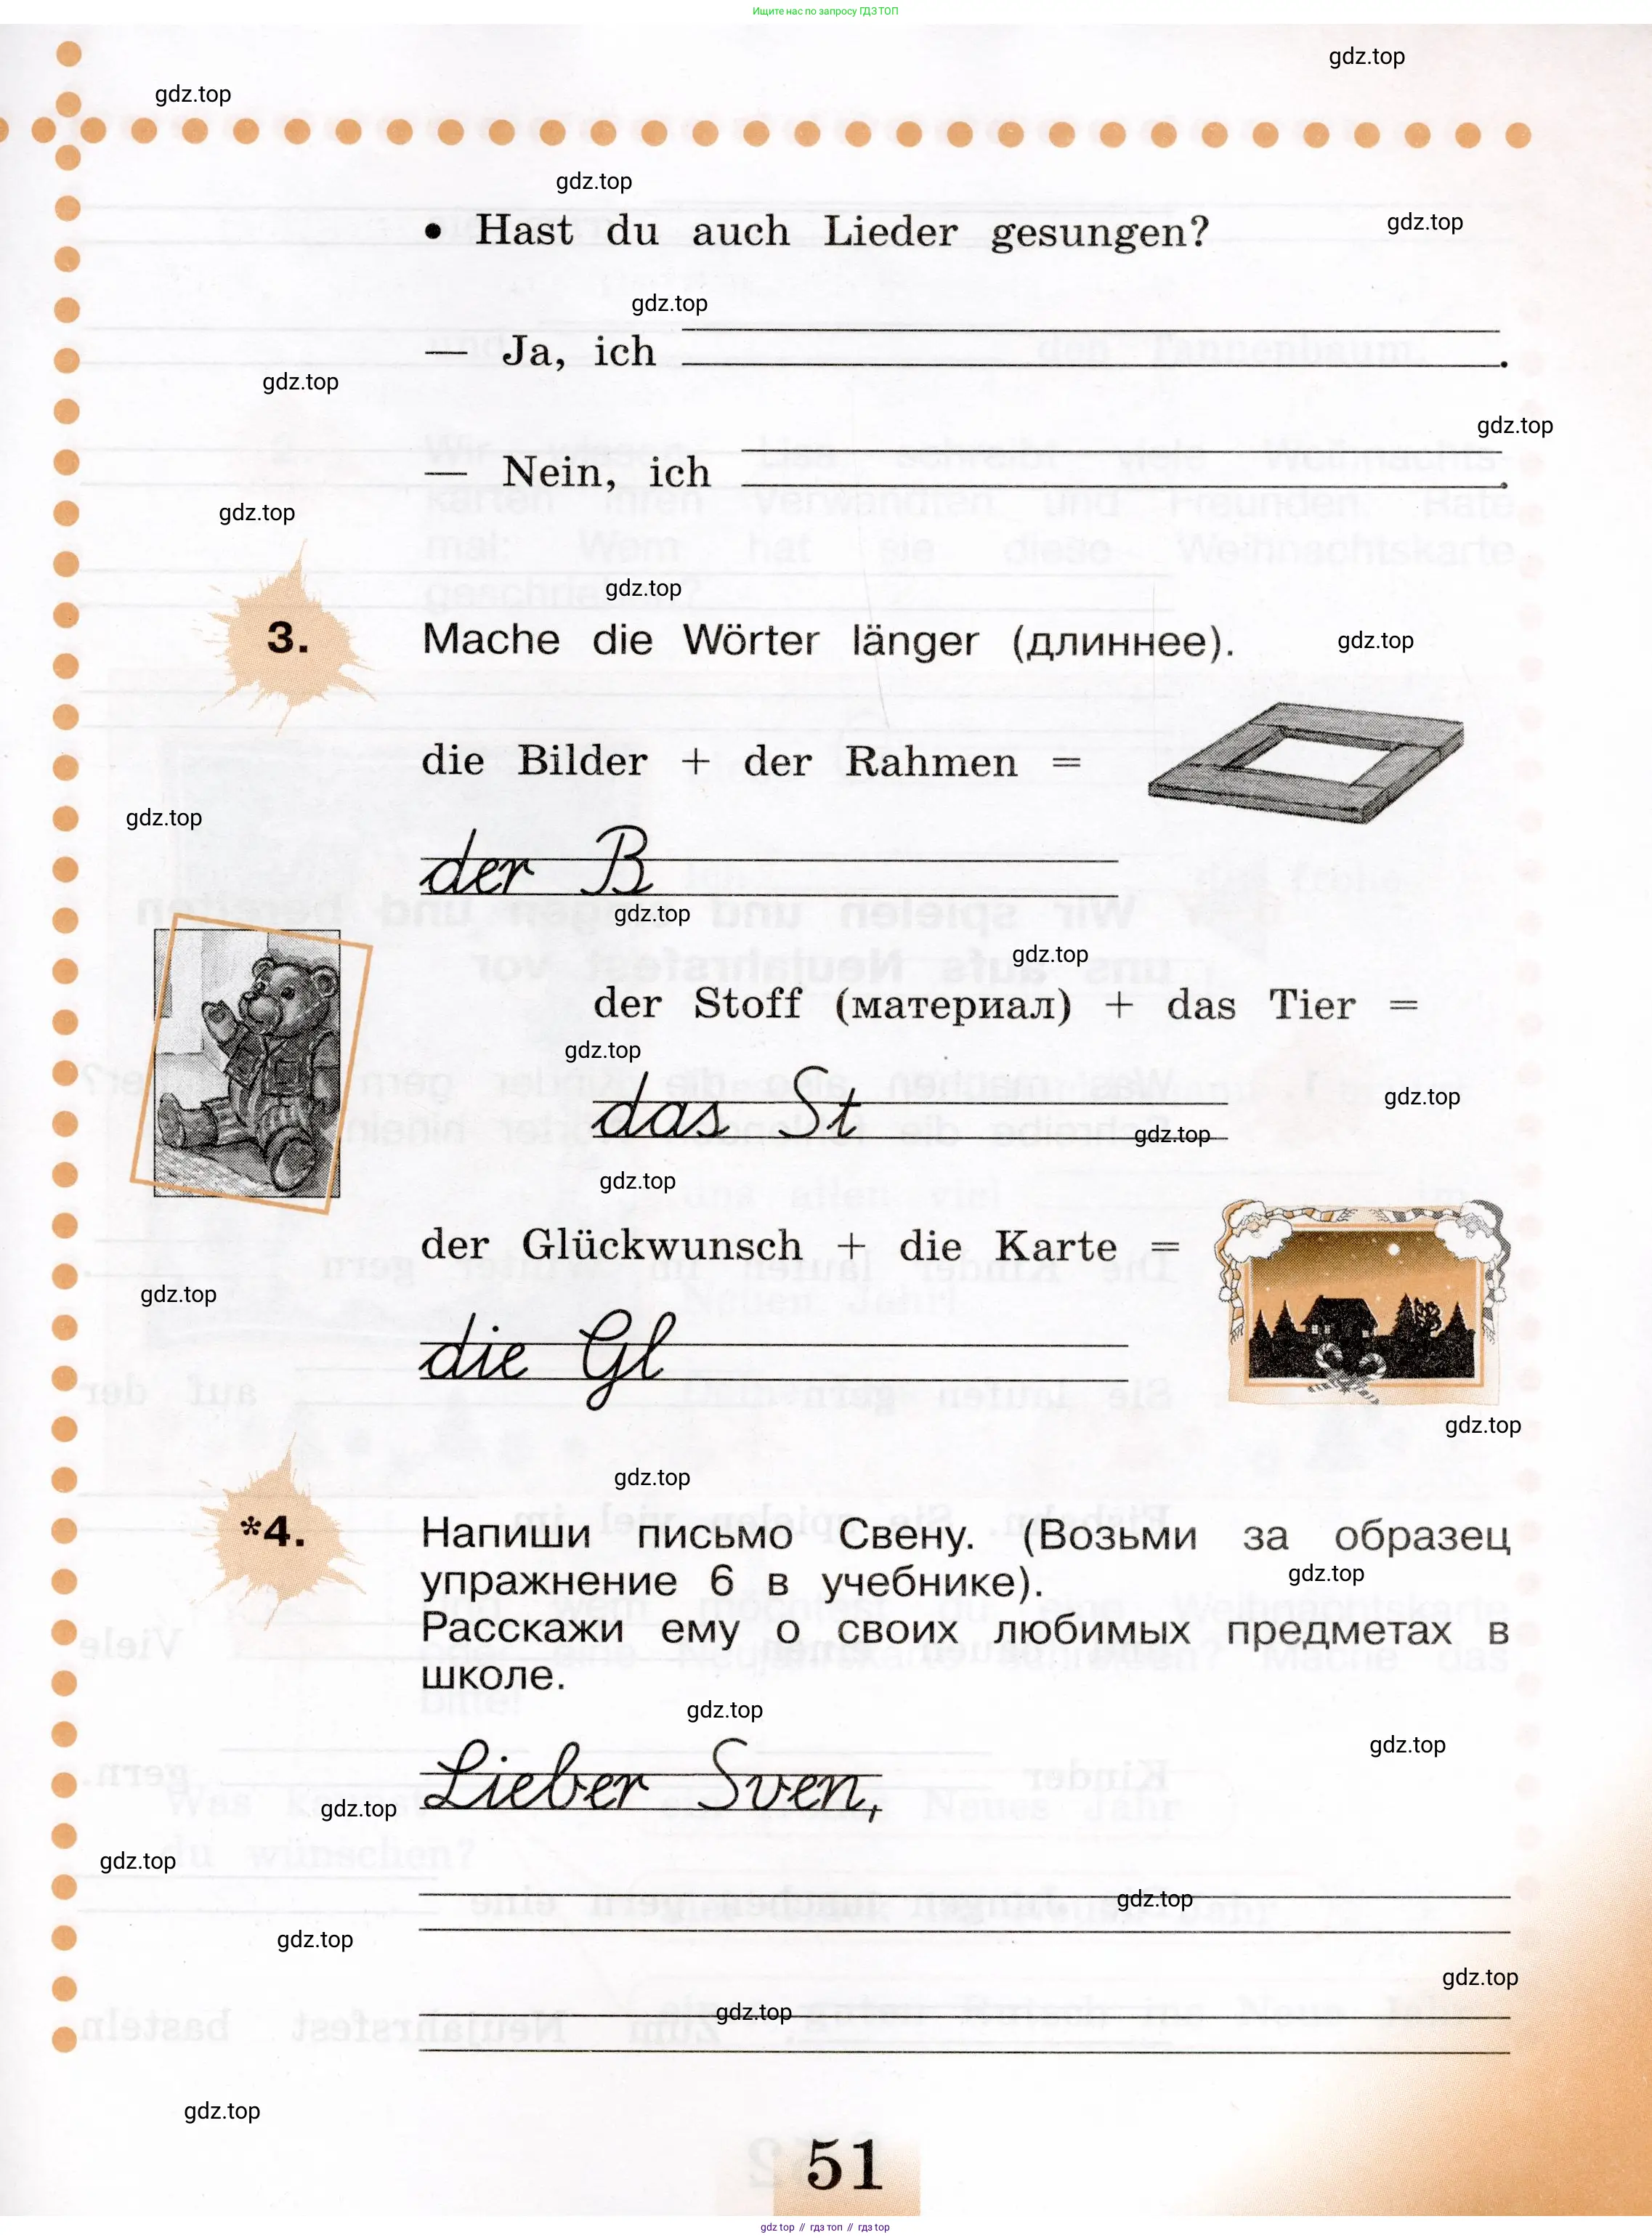 Ищите нас по запросу ГДЗ ТОП
gdz.top
gdz.top
gdz.top
• Hast du auch Lieder gesungen?
gdz.top
gdz.top
— Ja, ich .
gdz.top
gdz.top
— Nein, ich .
gdz.top
gdz.top
3. Mache die Wörter länger (длиннее).
gdz.top
die Bilder + der Rahmen =
gdz.top
der B
gdz.top
gdz.top
der Stoff (материал) + das Tier =
gdz.top
das St
gdz.top
gdz.top
gdz.top
der Glückwunsch + die Karte =
gdz.top
die Gl
gdz.top
gdz.top
*4. Напиши письмо Свену. (Возьми за образец
упражнение 6 в учебнике).
gdz.top
Расскажи ему о своих любимых предметах в
школе.
gdz.top
gdz.top
Lieber Sven,
gdz.top
gdz.top
gdz.top
gdz.top
gdz.top
gdz.top
gdz.top
51
gdz.top // гдз топ // гдз top